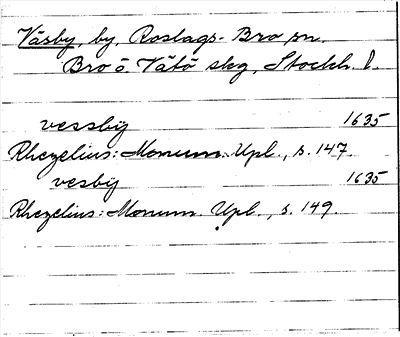 Väsby, by, Roslags-Bro sn.
Bro o. Vätö skg, Stockh. l.
vessbÿ 1635
Rhezelius: Monum. Upl., s. 147.
vesbÿ 1635
Rhezelius: Monum. Upl., s. 149.